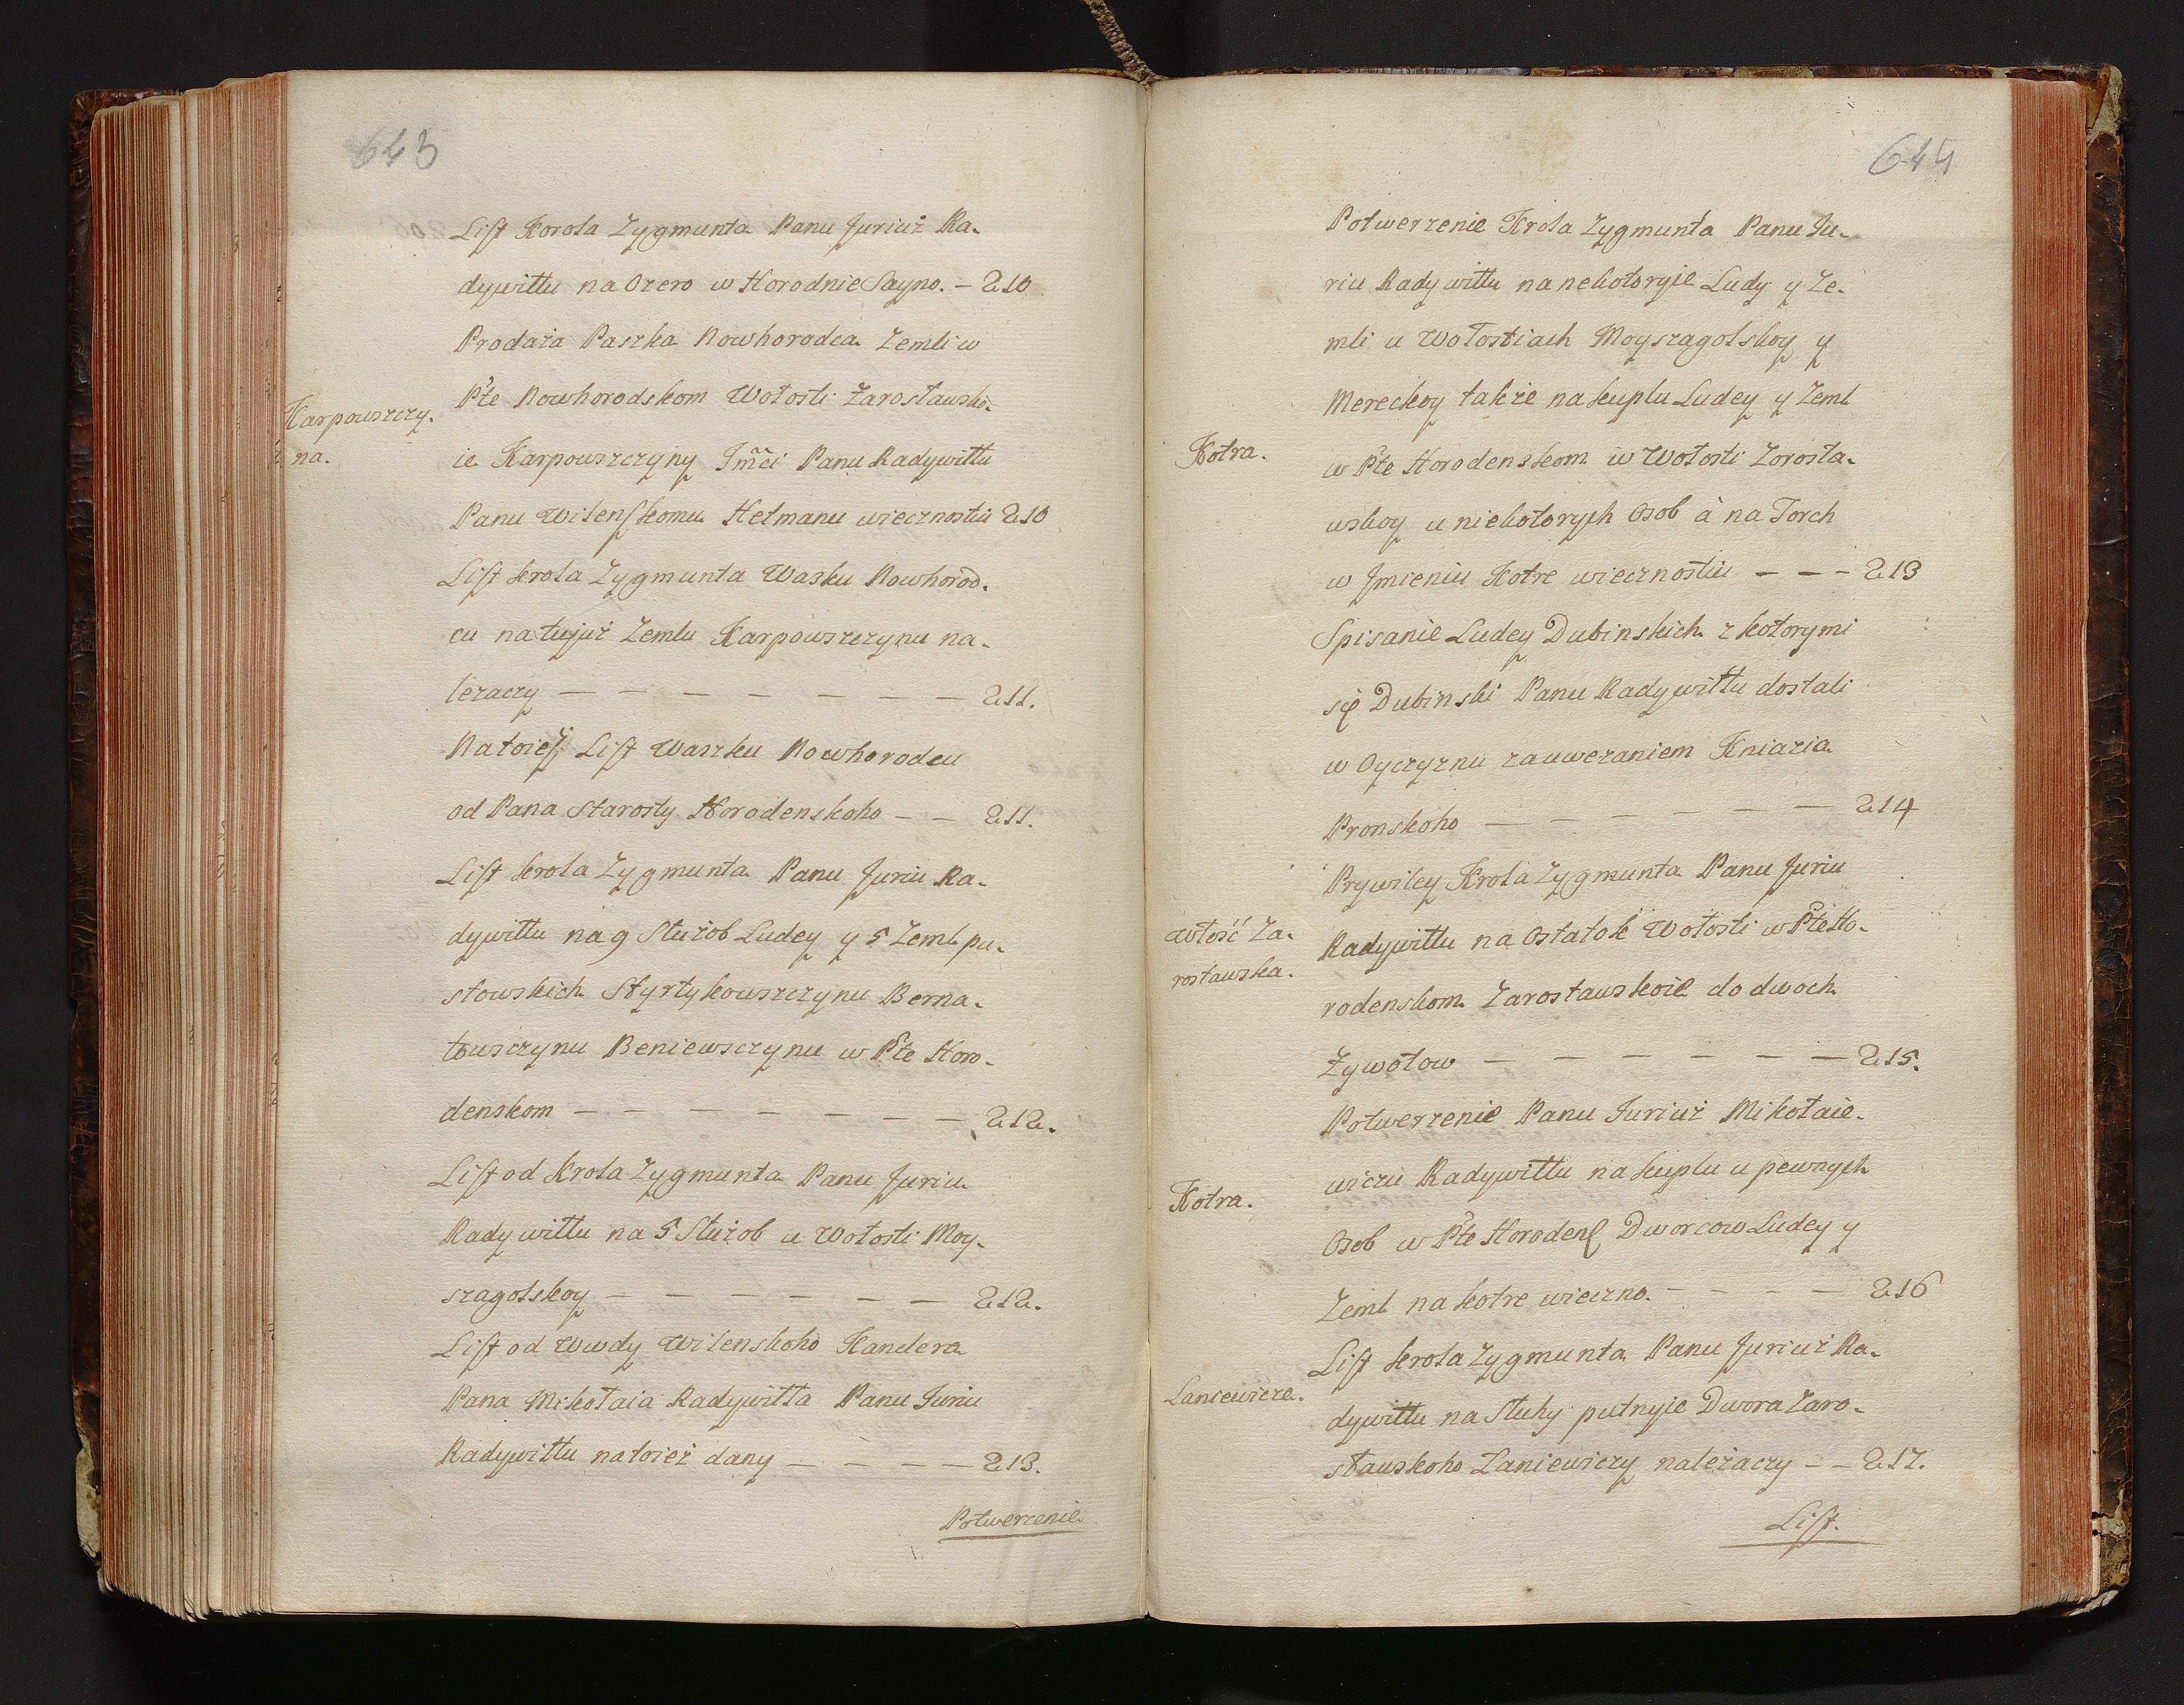 643
List Korola Zygmunta Panu Juriuż Ra-
dywiłłu na Ozero w Horodnie Sayno. – 210
Prodaża Paszka Nowhorodca Zemli w
Pt̃e Nowhorodskom Wołosti Żarosławsko-
Karpowszczy-
na.
ie Karpowszczyny Jm̃ći Panu Radywiłłu
Panu Wilenskomu Hetmanu wiecznostiu 210
List krola Zygmunta Wasku Nowhorod-
cu na tujuż Zemlu Karpowszczynu na-
leżaczy – – – – – – – 211.
Natoież List Waszku Nowhorodcu
od Pana Starosty Horodenskoho – – 211.
List krola Zygmunta Panu Juriu Ra-
dywiłłu na 9 Służob Ludey y 5 Zeml pu-
stowskich Styrtykowszczynu Berna-
towsczynu Beniewsczynu w Pt̃e Horo-
denskom – – – – – – – 212.
List od krola Zygmunta Panu Juriu
Radywiłłu na 5 Służob u Wołosti Moy-
szagolskoy – – – – – – 212.
List od Wwdy Wilenskoho Kanclera
Pana Mikołaia Radywiłła Panu Juriu
Radywiłłu natoież dany – – – – 213.
Potwerzenie
644
Potwerzenie Krola Zygmunta Panu Ju-
riu Radywiłłu na nekotoryie Ludy y Ze-
mli u Wołostiach Moyszagolskoy y
Mereckoy także na kuplu Ludey y Zeml
Kotra.
w Pt̃e Horodenskom w Wołosti Zorosła-
wskoy u niekotorych Osob à na Torch
w Jmieniu Kotre wiecznostiu – – – 213
Spisanie Ludey Dubinskich z kotorymi
się Dubinski Panu Radywiłłu dostali
w Oyczyznu za uwezaniem Kniazia
Pronskoho – – – – – – 214
Prywiley Krola Zygmunta Panu Juriu
Włość Za-
rosławska.
Radywiłłu na Ostatok Wołosti w Pt̃e Ho-
rodenskom Zarosławskoie do dwoch
Żywotow – – – – – – 215.
Potwerzenie Panu Juriuż Mikołaie-
wiczu Radywiłłu na kuplu u pewnych
Kotra.
Osob w Pt̃e Horodens Dworcow Ludey y
Zeml na kotre wieczno. – – – – 216
List krola Zygmunta Panu Juriuż Ra-
Laniewicze.
dywiłłu na Słuhy putnyie Dwora Zaro-
sławskoho Laniewiczy należaczy – – 217.
List.